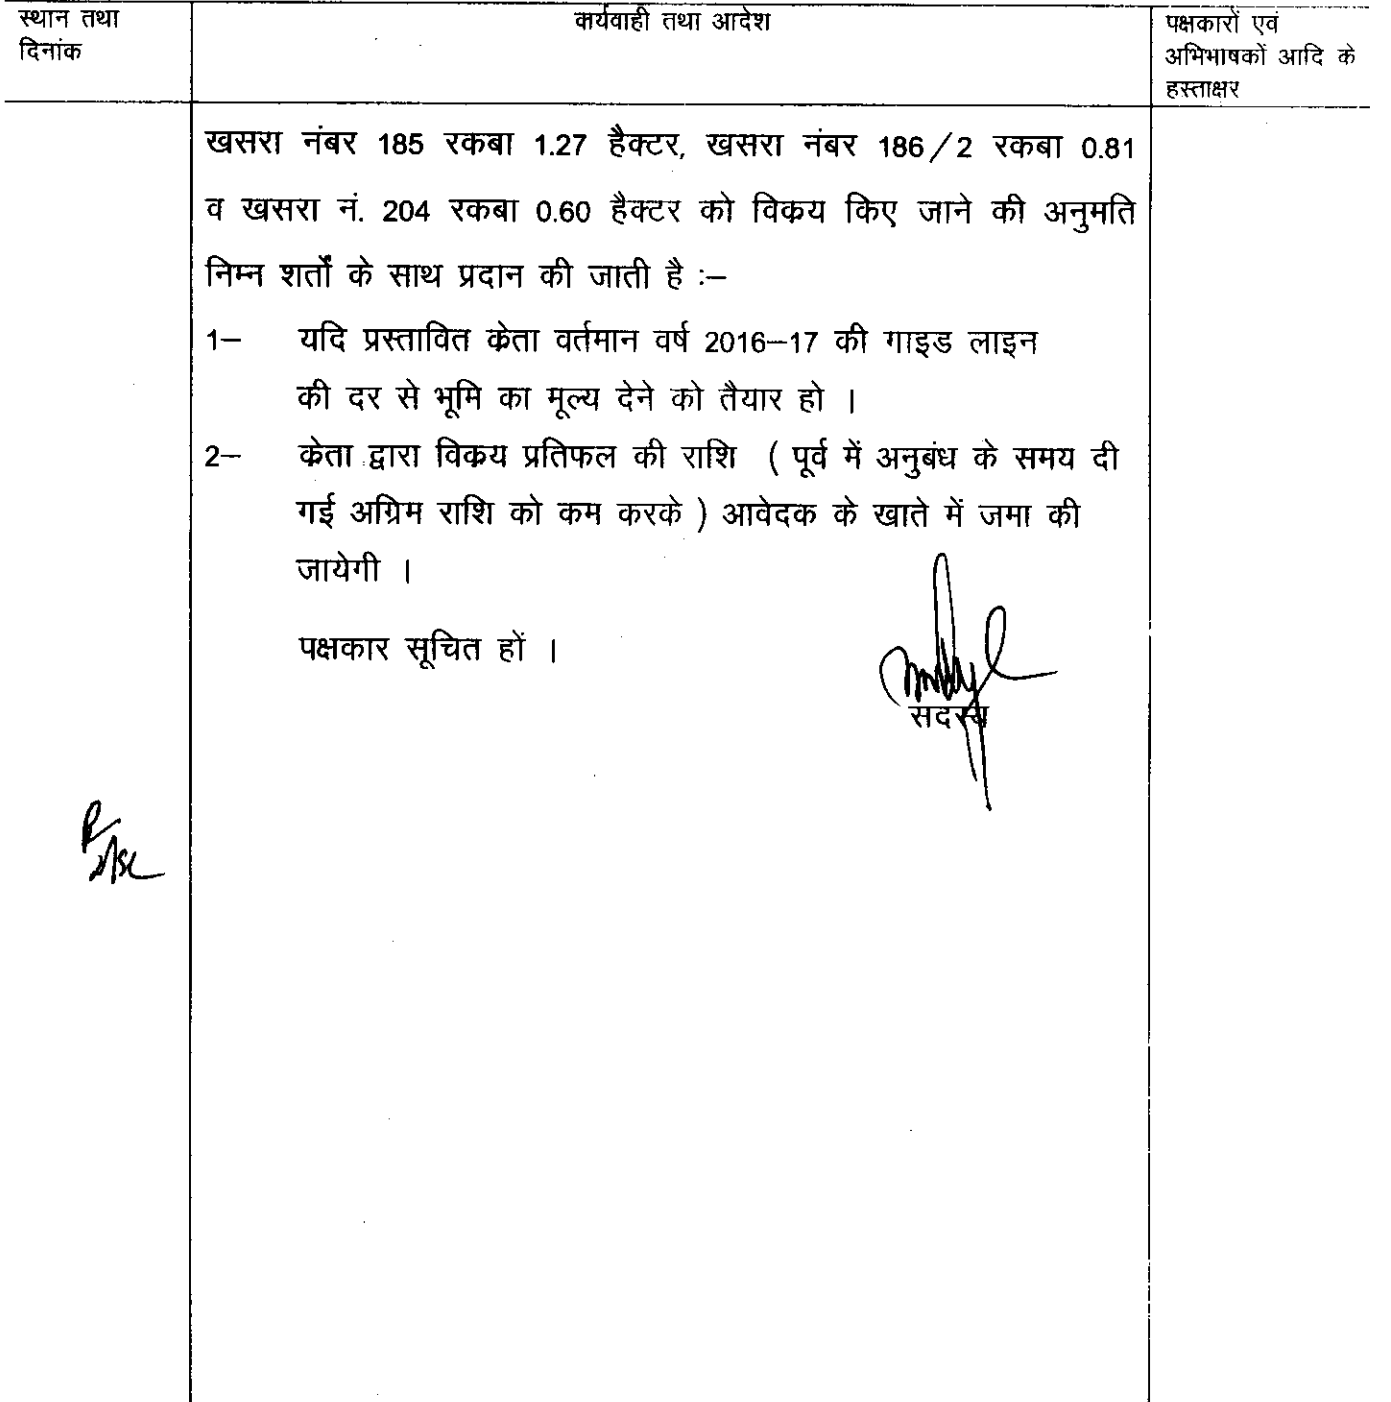 स्थान तथा
दिनांक
कार्यवाही तथा आदेश
पक्षकारों एवं
अभिभाषकों आदि के
हस्ताक्षर
खसरा नंबर 185 रकबा 1.27 हैक्टर, खसरा नंबर 186/2 रकबा 0.81
व खसरा नं. 204 रकबा 0.60 हैक्टर को विकय किए जाने की अनुमति
निम्न शर्तों के साथ प्रदान की जाती है :–
1– यदि प्रस्तावित केता वर्तमान वर्ष 2016–17 की गाइड लाइन
की दर से भूमि का मूल्य देने को तैयार हो ।
2– केता द्वारा विकय प्रतिफल की राशि ( पूर्व में अनुबंध के समय दी
गई अग्रिम राशि को कम करके ) आवेदक के खाते में जमा की
जायेगी ।
पक्षकार सूचित हों ।
सदस्य